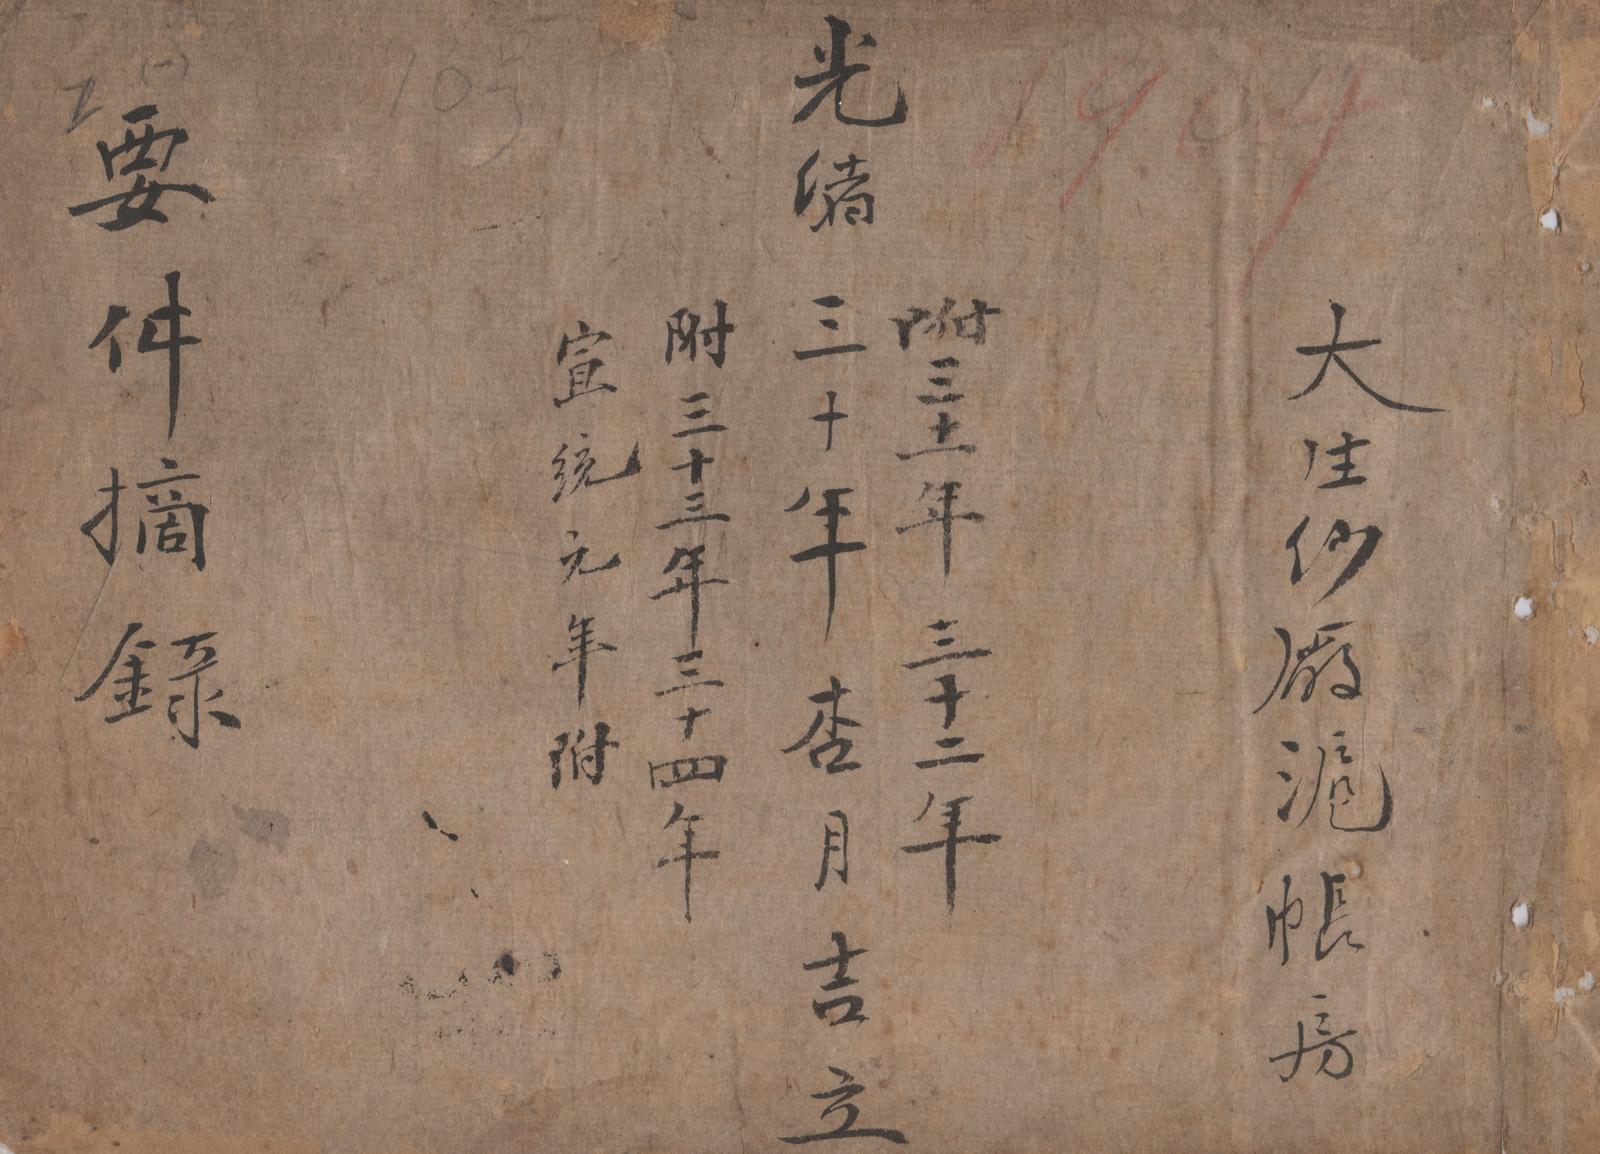 大生紗廠滬帳房
附三十一年三十二年
光緒三十年杏月吉立
附三十三年三十四年
宣統元年附
要件摘錄
1904
10号